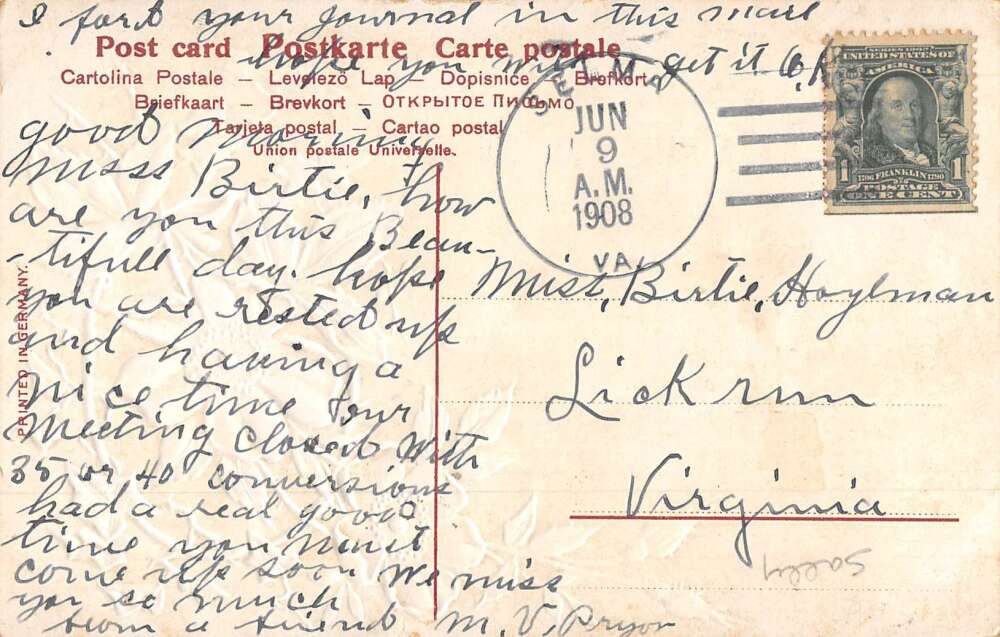 I fort your journal in this mail
hope you will get it
Post card Postkarte Carte postale
Cartolina Postale – Levelező Lap – Dopisnice – Brefkort –
Briefkaart – Brevkort – ОТКРЫТОЕ ПИСЬМО
Tarjeta postal – Cartao postal
Union postale Universelle.
good morning
miss Birtie, how
are you this Beau-
-tifull day. hope
you are rested up
and having a
nice, time Our
Meeting closed with
35 or 40 conversions
had a real good
time you must
come up soon We miss
you so much
from a friend M. V. Pryor
PRINTED IN GERMANY.
SELMA
JUN
9
A.M.
1908
VA.
SERIES 1902
UNITED STATES OF
AMERICA
1 1
1706 FRANKLIN 1790
POSTAGE
ONE CENT
Miss, Birtie, Hoylman
Lick run
Virginia
Sally